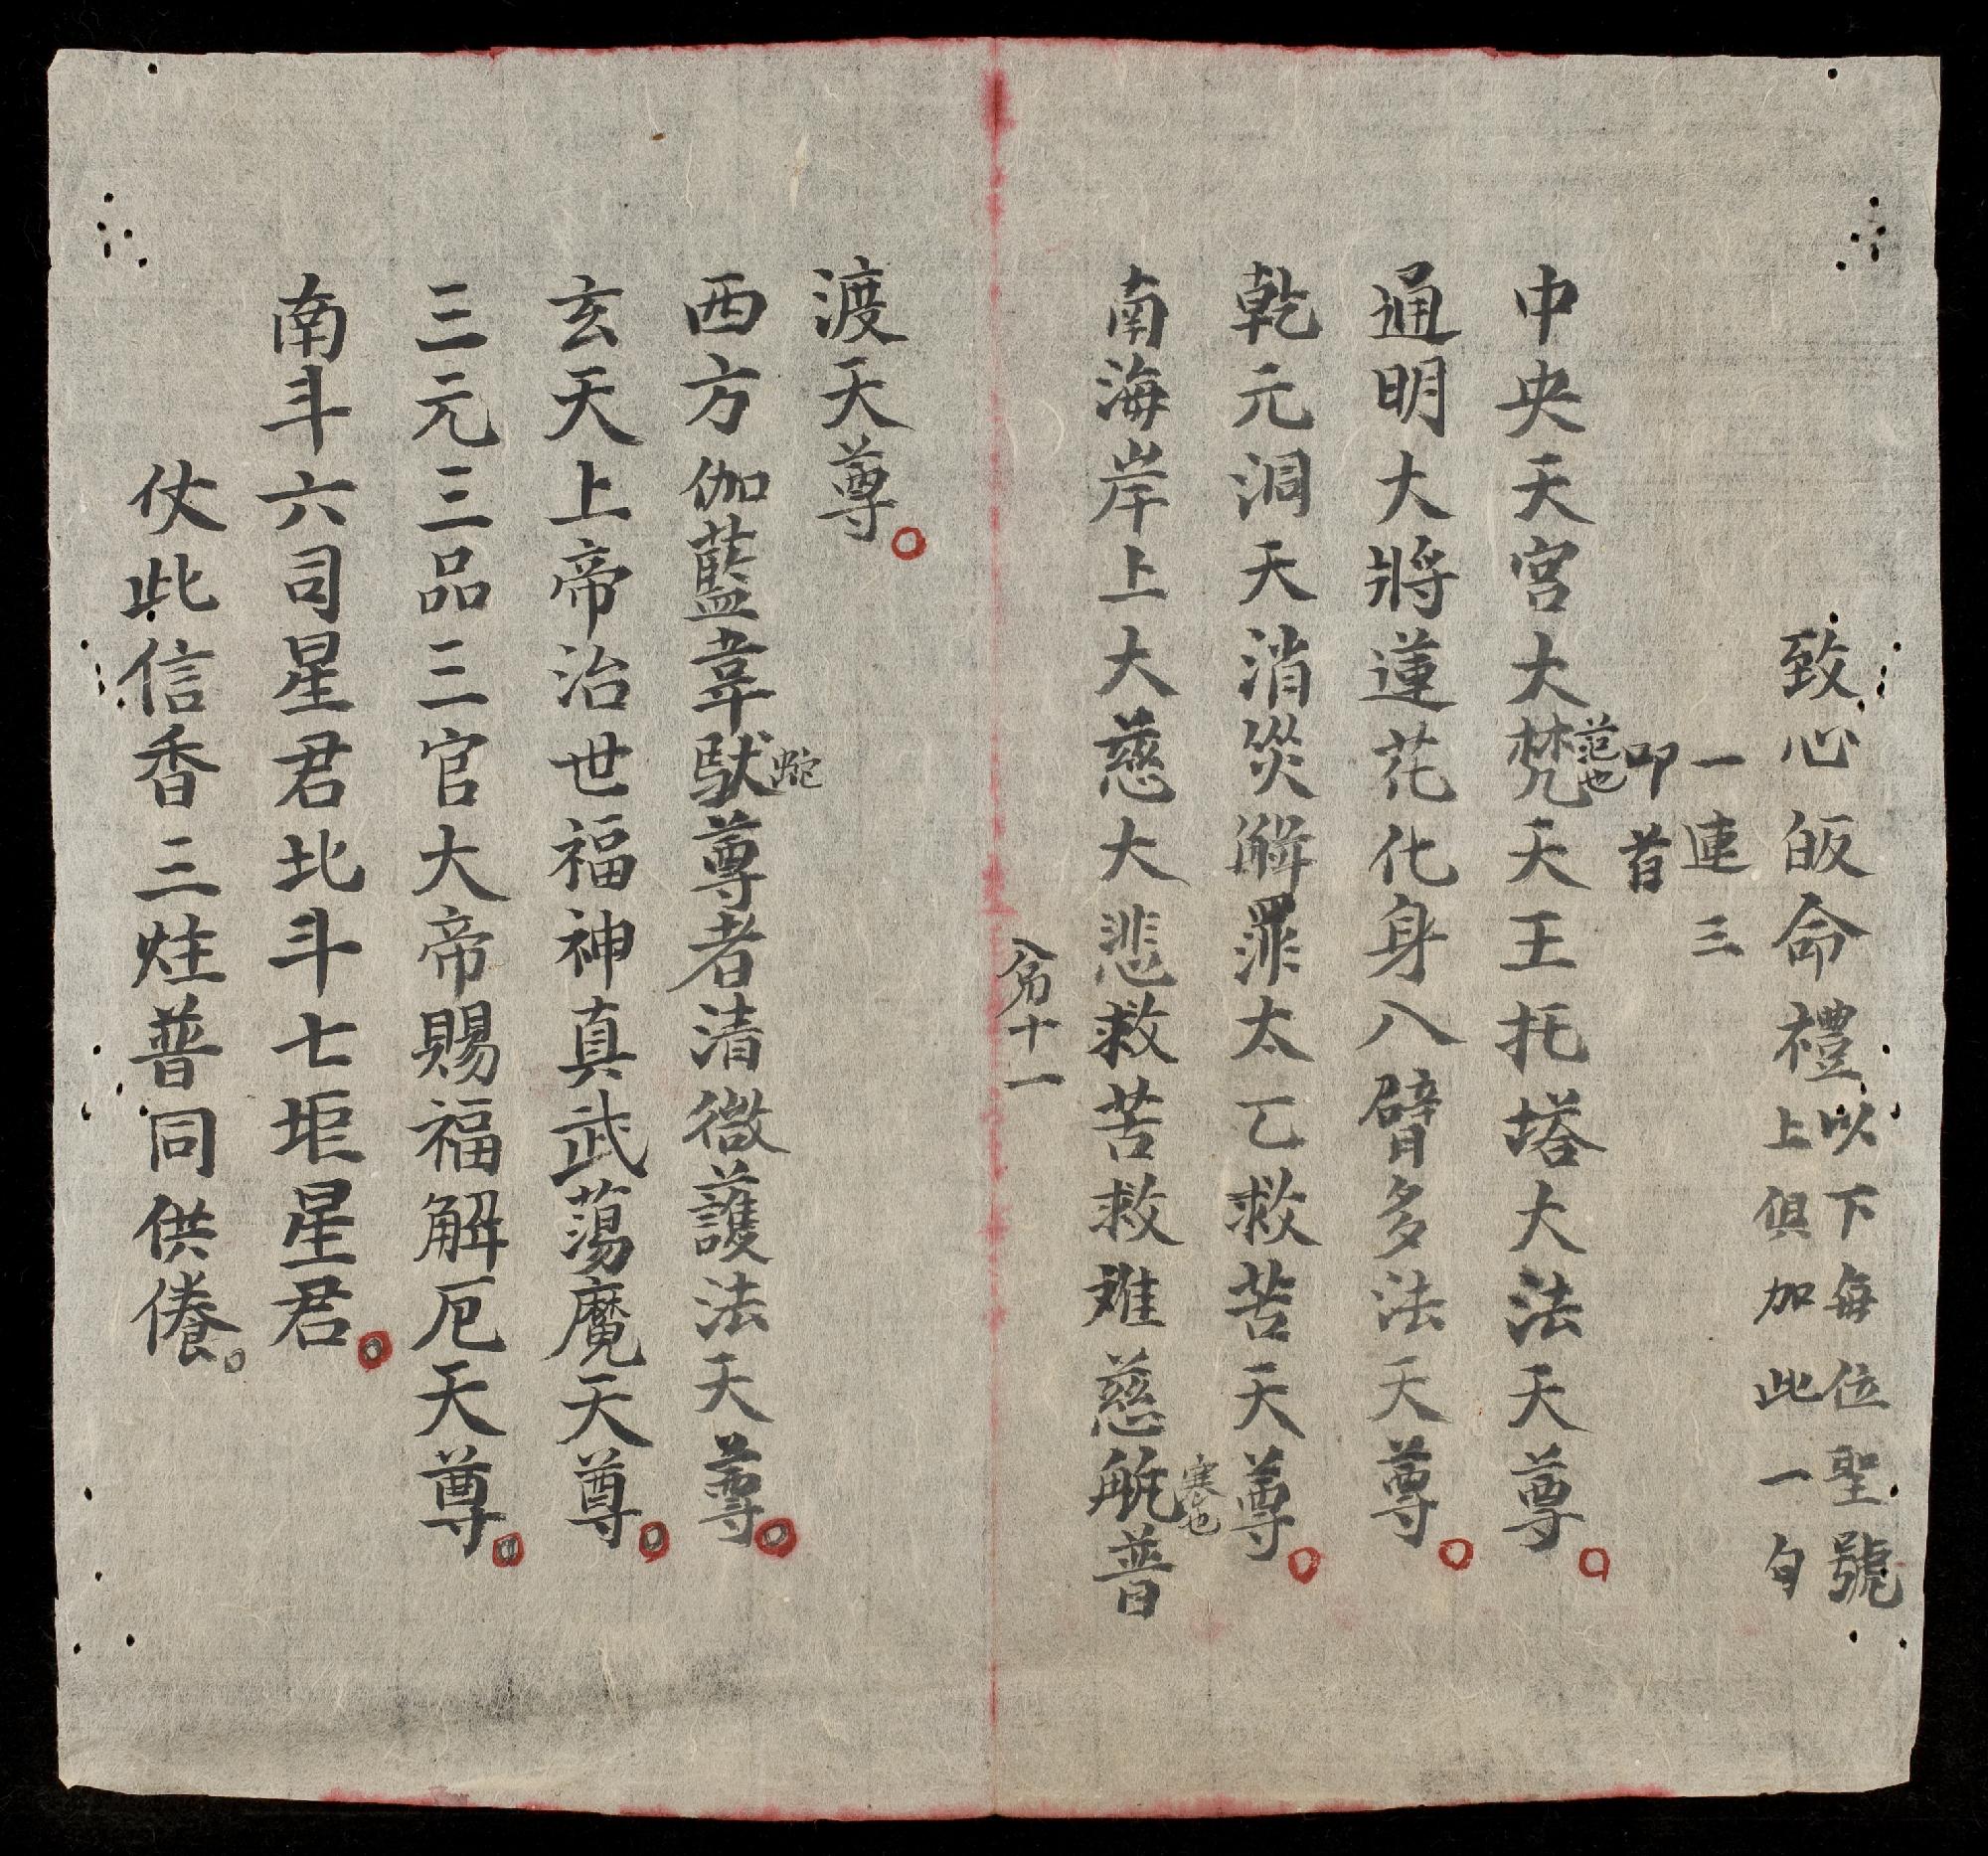 致心皈命禮
以下每位聖號
上俱加此一句
一連三
叩首
中央天宮大梵天王托塔大法天尊
范也
通明大將蓮花化身八臂多法天尊
乾元洞天消災解罪太乙救苦天尊
南海岸上大慈大悲救苦救难慈航普
寒也
十一
渡天尊
西方伽藍韋馱尊者清微護法天尊
蛇
玄天上帝治世福神真武蕩魔天尊
三元三品三官大帝賜福解厄天尊
南斗六司星君北斗七垣星君
仗此信香三炷普同供養